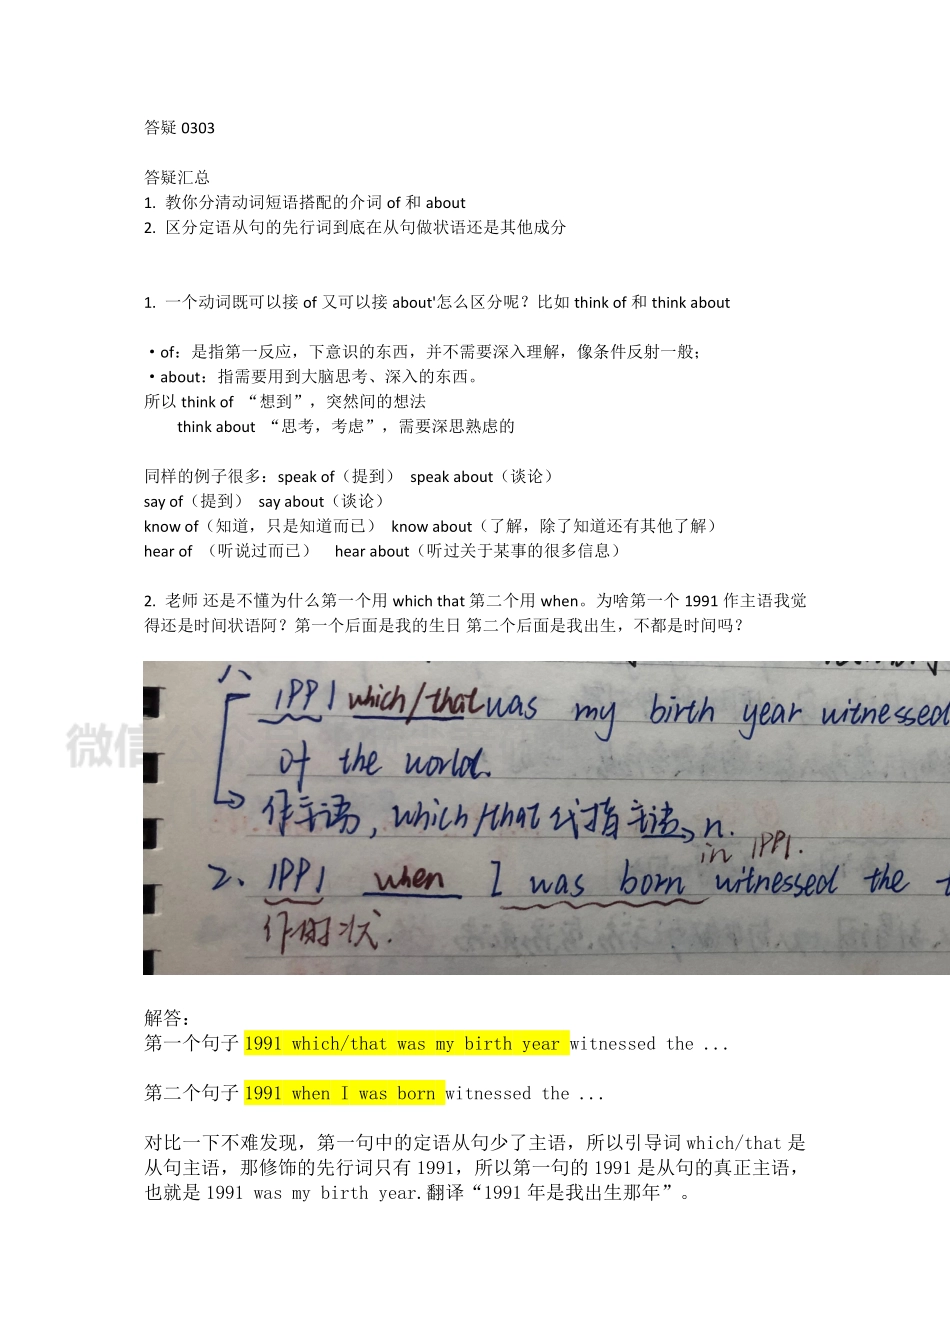 答疑 0303
答疑汇总
1. 教你分清动词短语搭配的介词 of 和 about
2. 区分定语从句的先行词到底在从句做状语还是其他成分
1. 一个动词既可以接 of 又可以接 about'怎么区分呢？比如 think of 和 think about
·of：是指第一反应，下意识的东西，并不需要深入理解，像条件反射一般；
·about：指需要用到大脑思考、深入的东西。
所以 think of “想到”，突然间的想法
think about “思考，考虑”，需要深思熟虑的
同样的例子很多：speak of（提到） speak about（谈论）
say of（提到） say about（谈论）
know of（知道，只是知道而已） know about（了解，除了知道还有其他了解）
hear of （听说过而已） hear about（听过关于某事的很多信息）
2. 老师 还是不懂为什么第一个用 which that 第二个用 when。为啥第一个 1991 作主语我觉
得还是时间状语阿？第一个后面是我的生日 第二个后面是我出生，不都是时间吗？
1991 which/that was my birth year witnessed
of the world.
作主语，which/that 代指主语 n.
in 1991.
2、1991 when I was born witnessed the
作时状.
微信
解答：
第一个句子 1991 which/that was my birth year witnessed the ...
第二个句子 1991 when I was born witnessed the ...
对比一下不难发现，第一句中的定语从句少了主语，所以引导词 which/that 是
从句主语，那修饰的先行词只有 1991，所以第一句的 1991 是从句的真正主语，
也就是 1991 was my birth year.翻译“1991 年是我出生那年”。